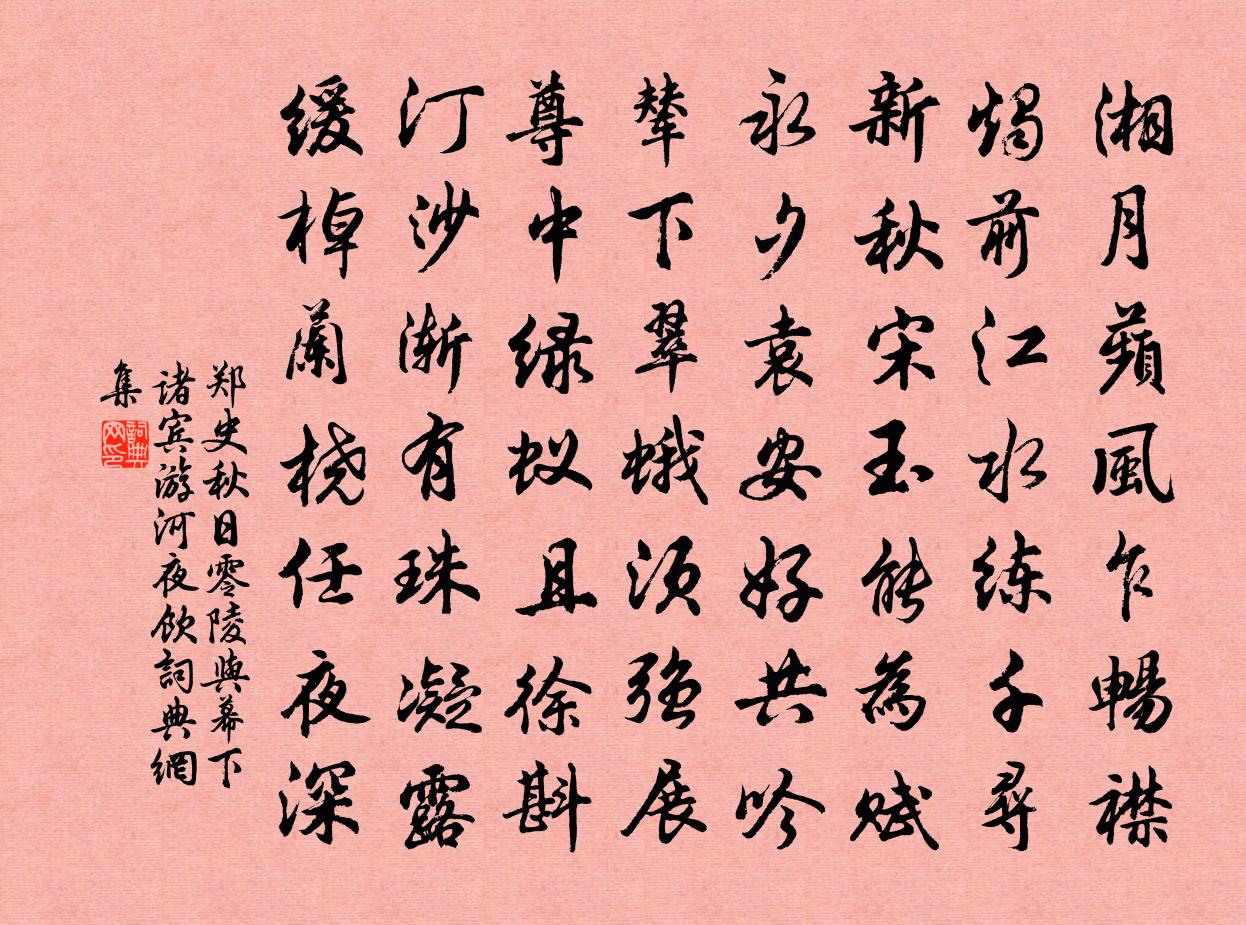 湘月蘋風乍暢襟
燭前江水练千尋
新秋宋玉能為赋
永夕袁安好共吟
辇下翠蛾须强展
尊中绿蚁且徐斟
汀沙渐有珠凝露
缓棹蘭桡任夜深
郑史秋日零陵與幕下
诸宾游河夜飲詞典網
集
詞典网印